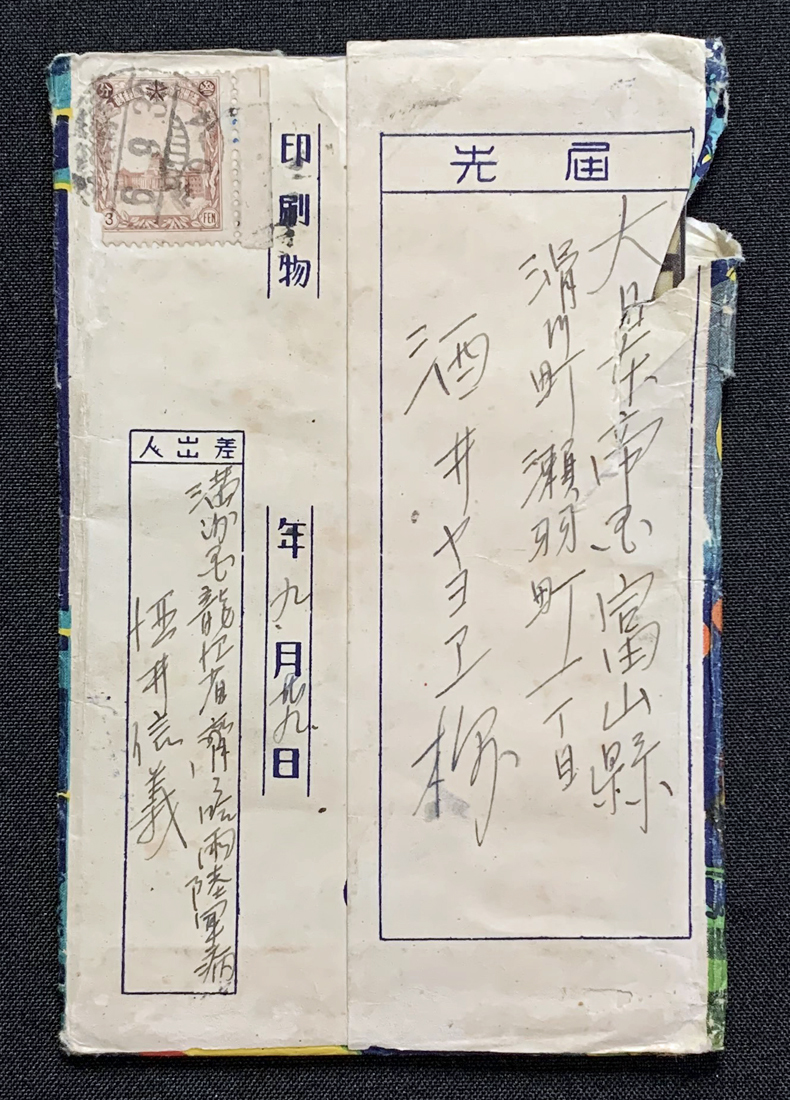 届先
大日本帝国富山縣
滑川町瀬羽町一丁目
酒井ヤヨヱ様
印刷物
年九月廿九日
差出人
満洲国龍江省齊々哈爾陸軍病
酒井信義
3 FEN